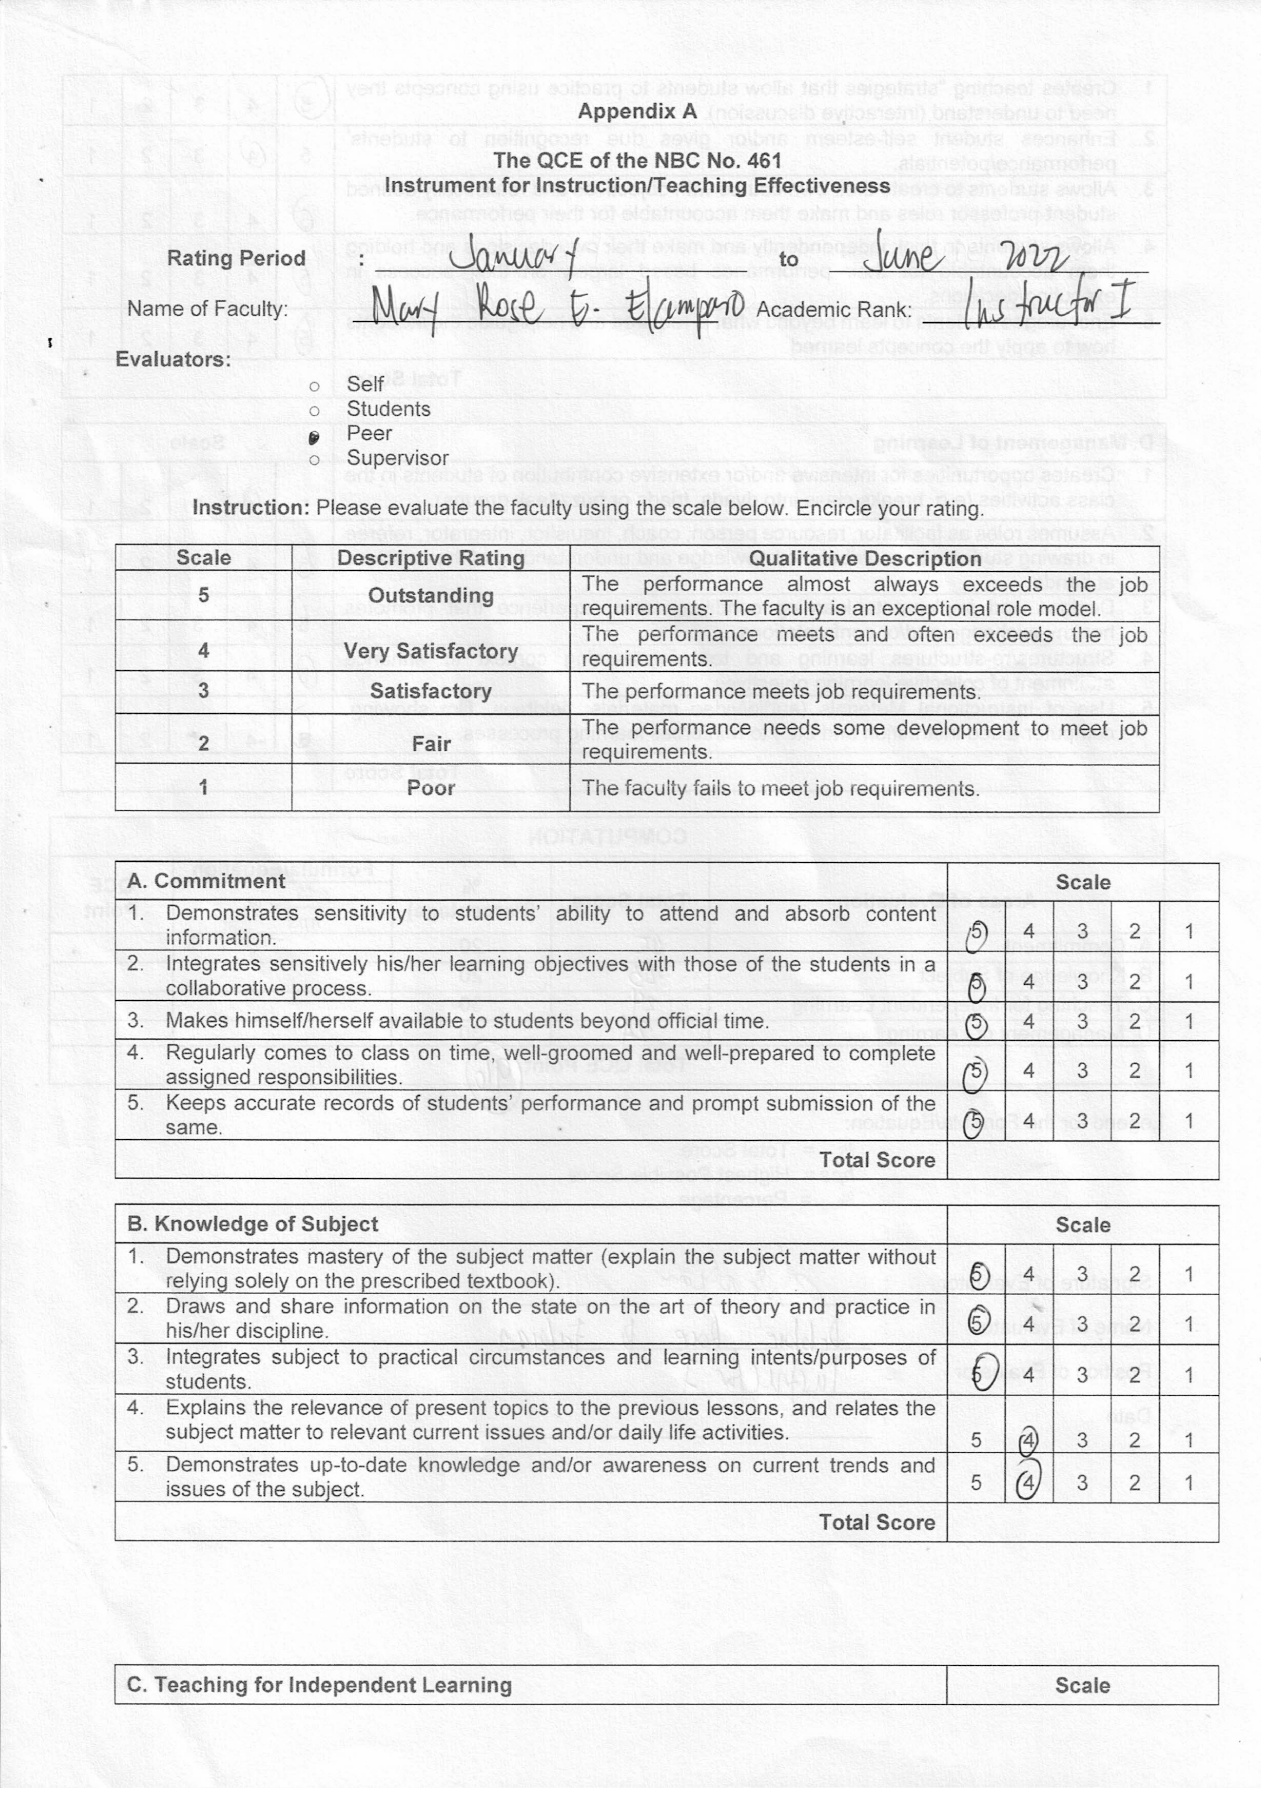 Appendix A
The QCE of the NBC No. 461
Instrument for Instruction/Teaching Effectiveness
Rating Period : January to June 2022
Name of Faculty: Mary Rose E. Elamparo Academic Rank: Instructor I
Evaluators:
o Self
o Students
Peer
o Supervisor
Instruction: Please evaluate the faculty using the scale below. Encircle your rating.
Scale Descriptive Rating Qualitative Description
5 Outstanding The performance almost always exceeds the job
requirements. The faculty is an exceptional role model.
4 Very Satisfactory The performance meets and often exceeds the job
requirements.
3 Satisfactory The performance meets job requirements.
2 Fair The performance needs some development to meet job
requirements.
1 Poor The faculty fails to meet job requirements.
A. Commitment Scale
1. Demonstrates sensitivity to students' ability to attend and absorb content
information. 5 4 3 2 1
2. Integrates sensitively his/her learning objectives with those of the students in a
collaborative process. 5 4 3 2 1
3. Makes himself/herself available to students beyond official time. 5 4 3 2 1
4. Regularly comes to class on time, well-groomed and well-prepared to complete
assigned responsibilities. 5 4 3 2 1
5. Keeps accurate records of students' performance and prompt submission of the
same. 5 4 3 2 1
Total Score
B. Knowledge of Subject Scale
1. Demonstrates mastery of the subject matter (explain the subject matter without
relying solely on the prescribed textbook). 5 4 3 2 1
2. Draws and share information on the state on the art of theory and practice in
his/her discipline. 5 4 3 2 1
3. Integrates subject to practical circumstances and learning intents/purposes of
students. 5 4 3 2 1
4. Explains the relevance of present topics to the previous lessons, and relates the
subject matter to relevant current issues and/or daily life activities. 5 4 3 2 1
5. Demonstrates up-to-date knowledge and/or awareness on current trends and
issues of the subject. 5 4 3 2 1
Total Score
C. Teaching for Independent Learning Scale